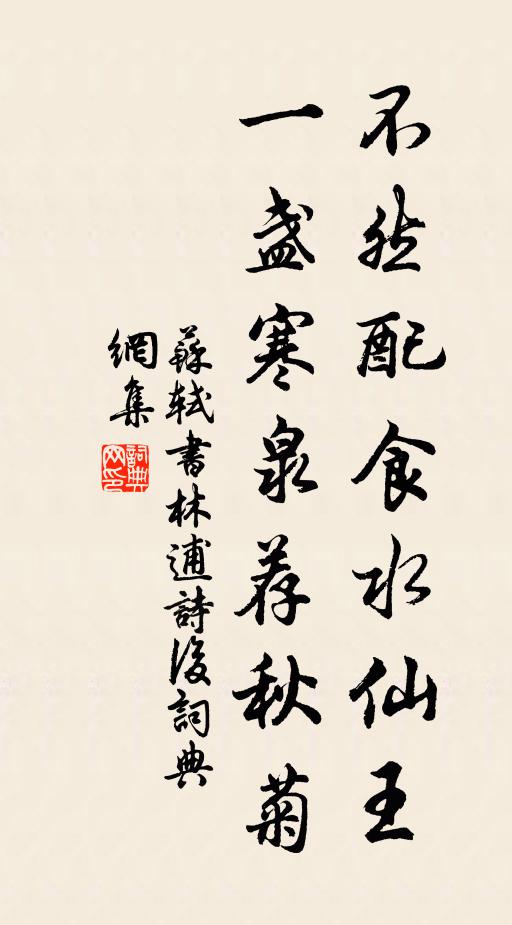 不然配食水仙王
一盏寒泉荐秋菊
蘇軾書林逋詩後詞典
網集
詞典
网印